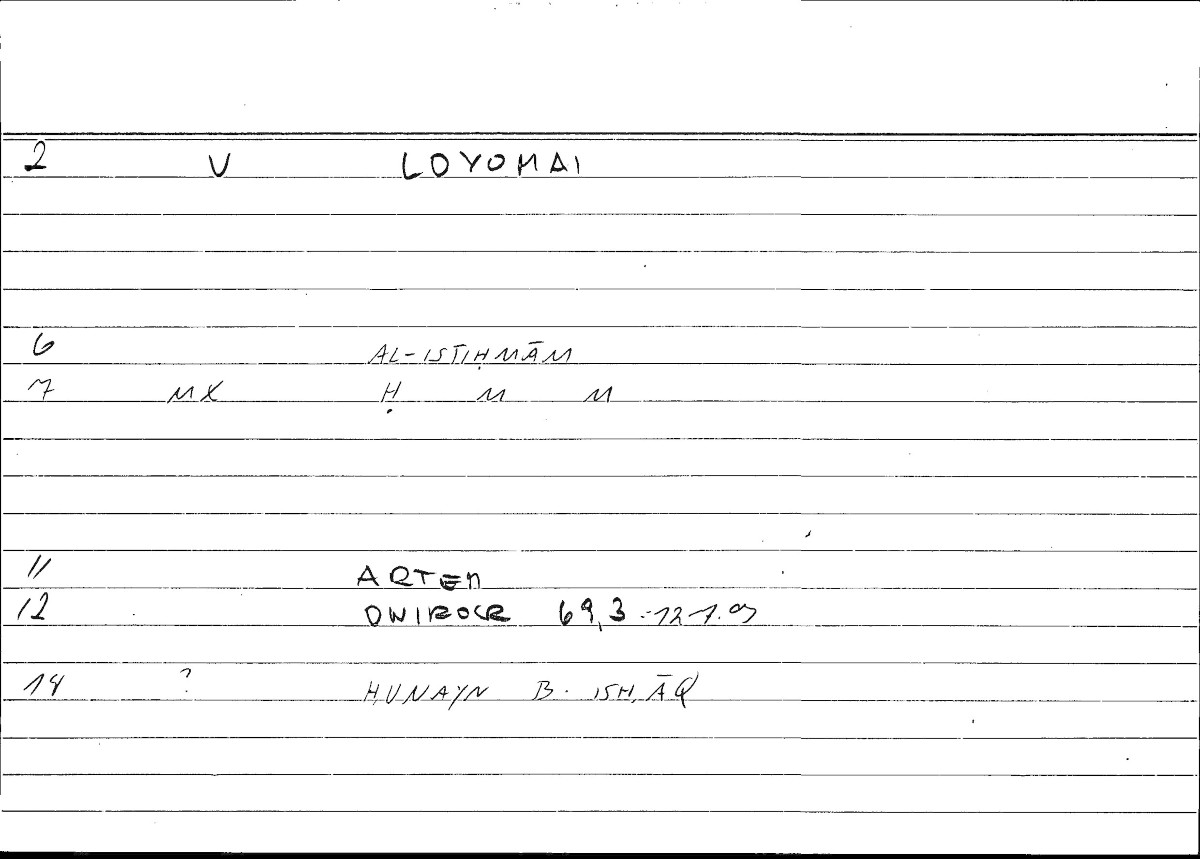 2 V LOYOMAI
6 AL-ISTIḤMĀM
7 MX Ḥ M M
11 ARTEM
12 ONIROCR 69,3
14 ? ḤUNAYN B. ISḤĀQ